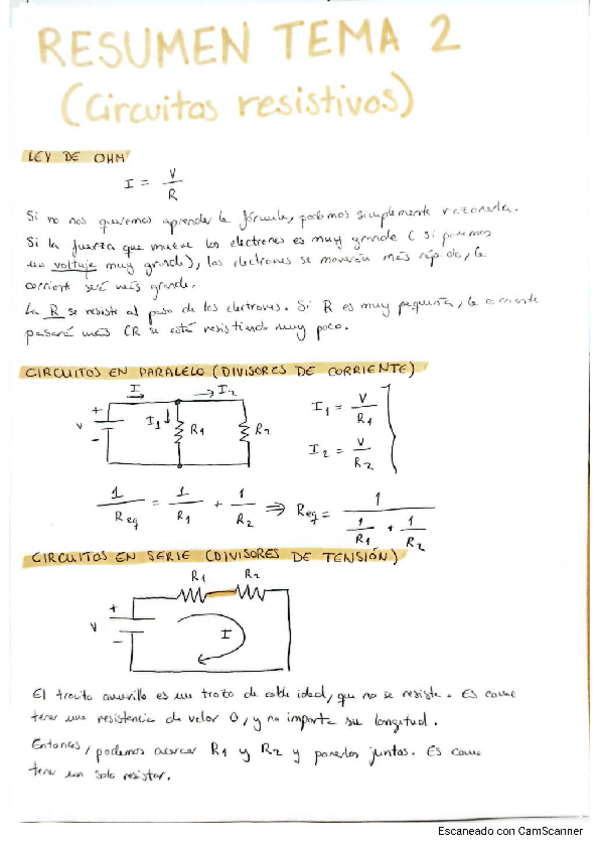 RESUMEN TEMA 2
(Circuitos resistivos)
LEY DE OHM
I = V / R
Si no nos queremos aprender la fórmula, podemos simplemente razonarla.
Si la fuerza que mueve los electrones es muy grande (si ponemos
un voltaje muy grande), los electrones se moverán más rápido, la
corriente será más grande.
La R se resiste al paso de los electrones. Si R es muy pequeña, la corriente
pasará más (R se está resistiendo muy poco.
CIRCUITOS EN PARALELO (DIVISORES DE CORRIENTE)
I → I2
+ V - I1 R1 R2
I1 = V / R1
I2 = V / R2
1 / Req = 1 / R1 + 1 / R2 ⇒ Req = 1 / (1 / R1 + 1 / R2)
CIRCUITOS EN SERIE (DIVISORES DE TENSIÓN)
R1 R2
+ V - I
El trocito amarillo es un trozo de cable ideal, que no se resiste. Es como
tener una resistencia de valor 0, y no importa su longitud.
Entonces, podemos acercar R1 y R2 y ponerlos juntas. Es como
tener un solo resistor.
Escaneado con CamScanner